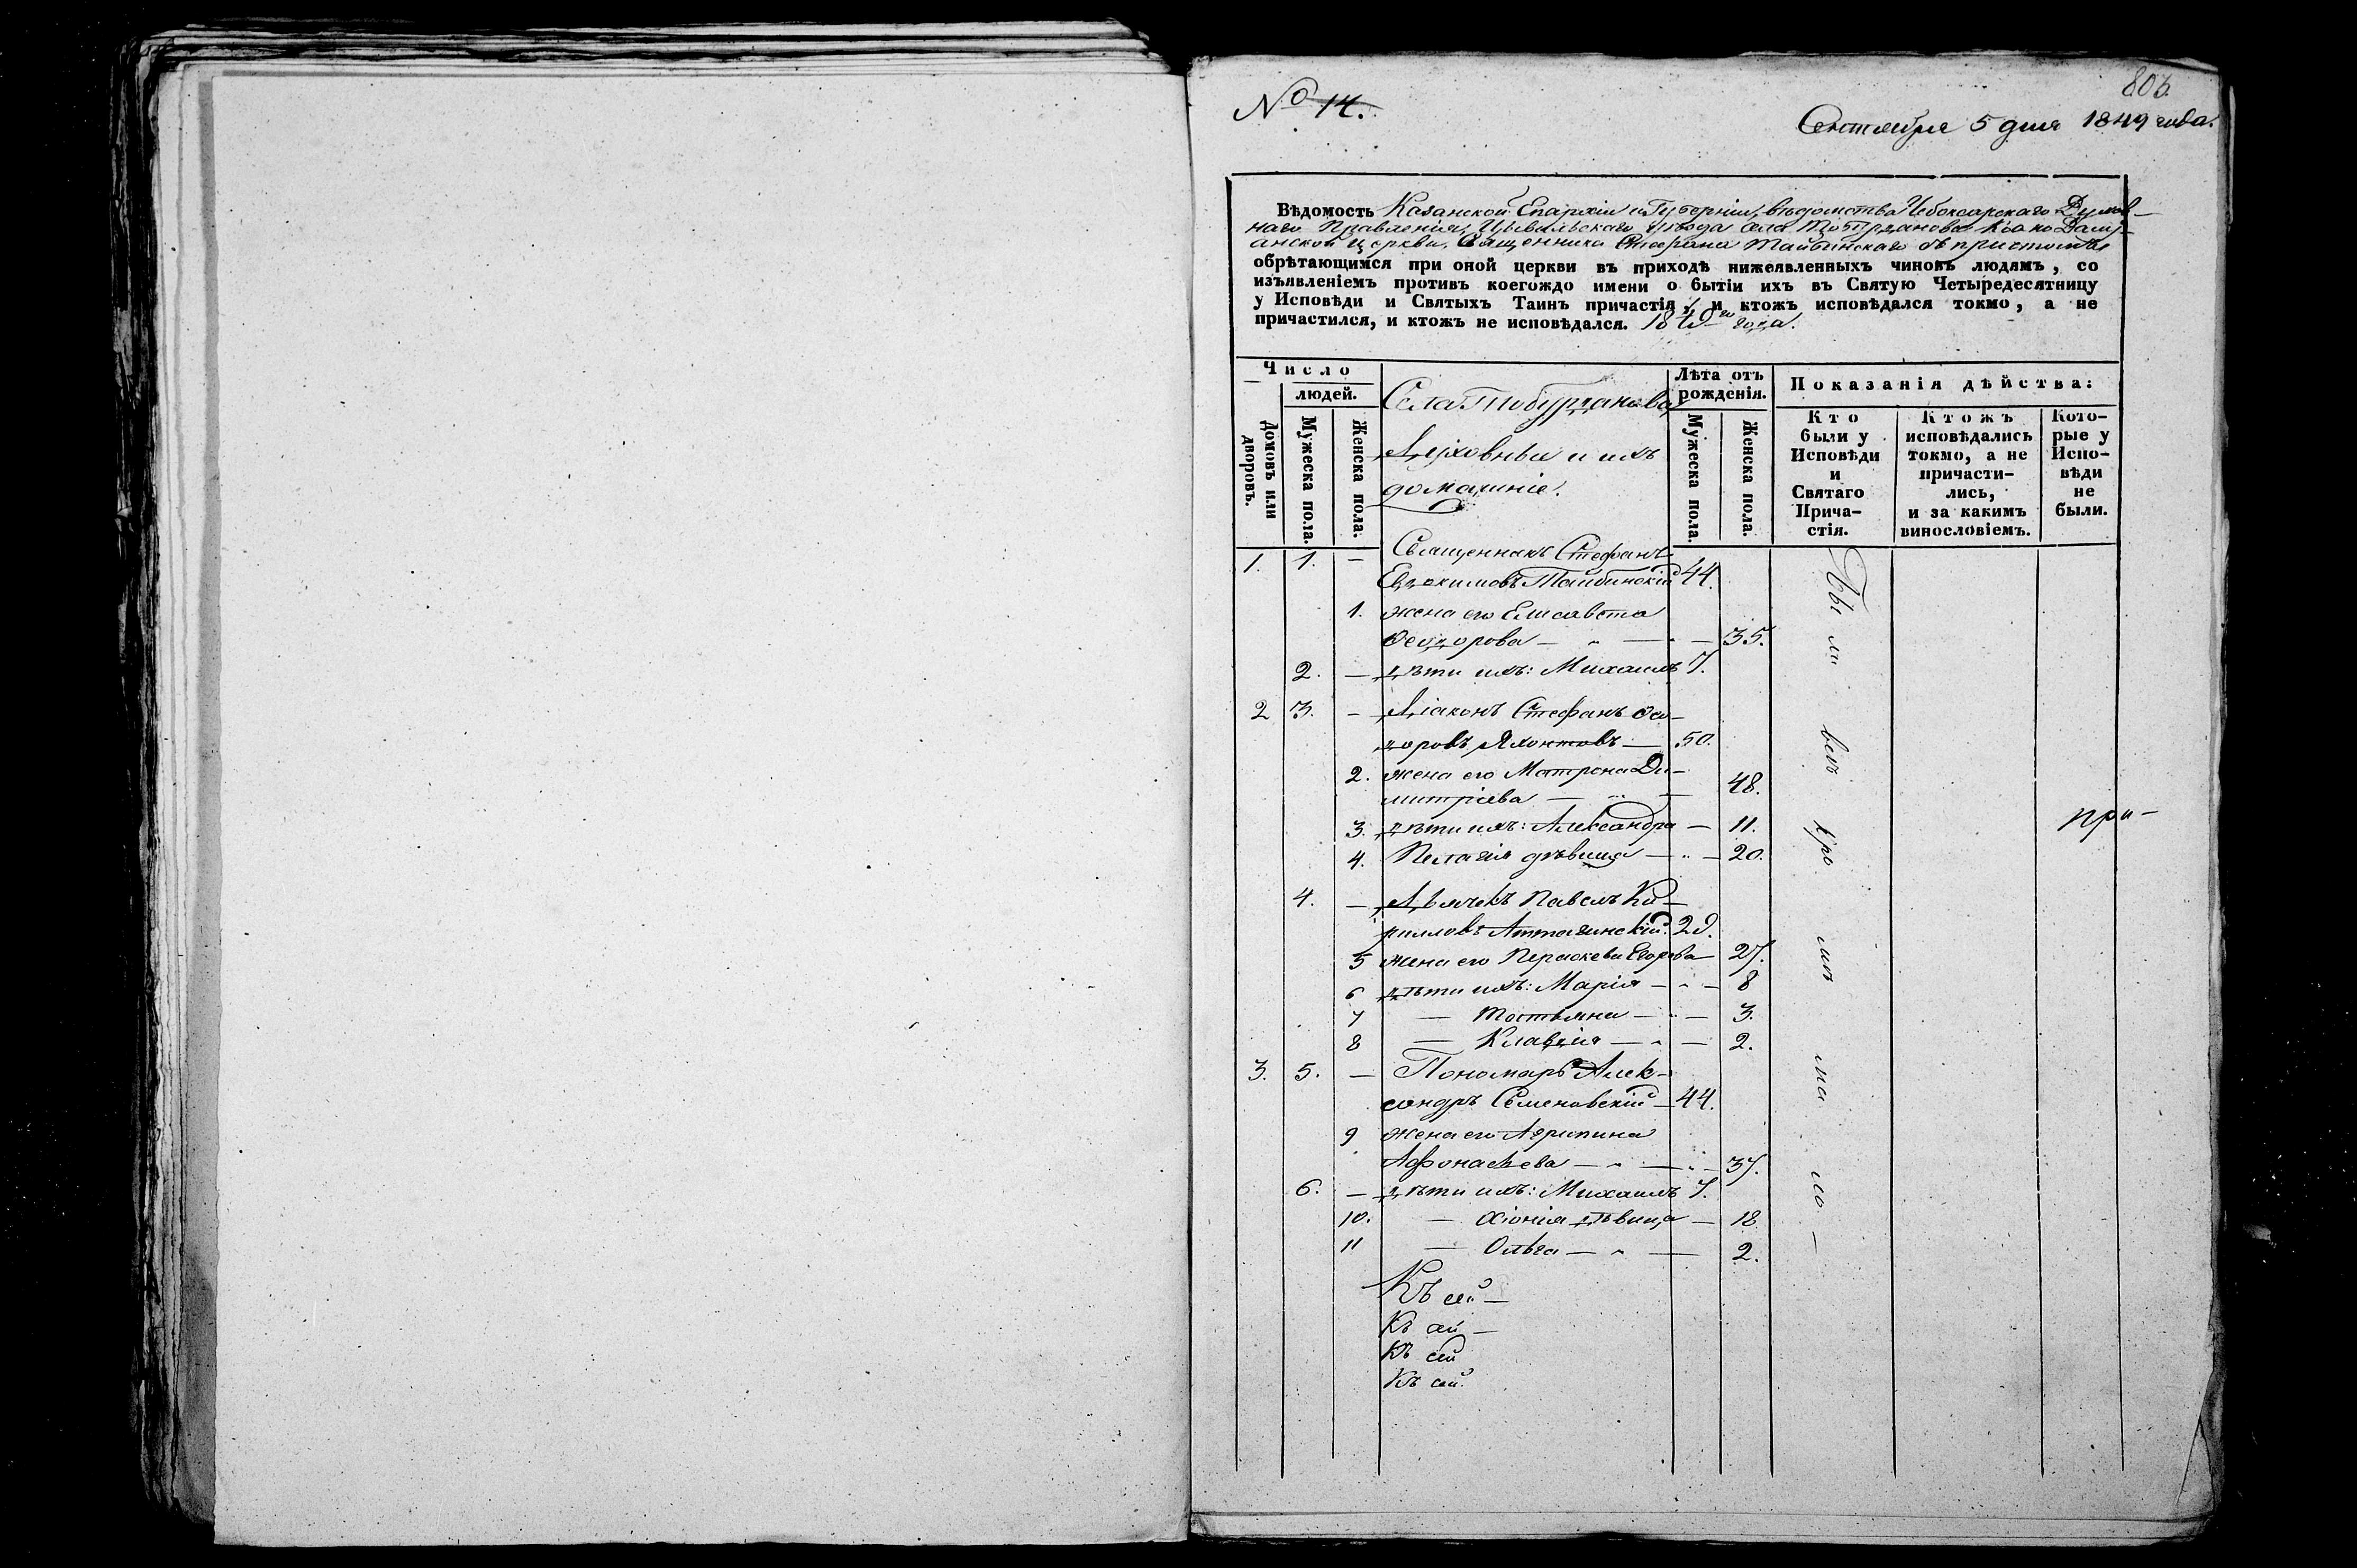 803.
№ 14.
Сентября 5 дня 1849 года.
Вѣдомость Казанской Епархіи и Губерніи, вѣдомства Чебоксарскаго Духов-
наго Правленія, Цывильскаго уѣзда села Тобурданова Космо Даміт-
анской церкви, Священника Стефана Тайбинскаго съ причтомъ
обрѣтающимся при оной церкви въ приходѣ нижеявленныхъ чиновъ людямъ, со
изъявленіемъ противъ коегождо имени о бытіи ихъ въ Святую Четыредесятницу
у Исповѣди и Святыхъ Таинъ причастія, и ктожъ исповѣдался токмо, а не
причастился, и ктожъ не исповѣдался. 1849го года.
Число
людей.
Домовъ или дворовъ.
Мужеска пола.
Женска пола.
Села Тобурданова
Духовныя и ихъ
домашніе.
Лѣта отъ рожденія.
Мужеска пола.
Женска пола.
Показанія дѣйства:
Кто были у Исповѣди и Святаго Прича-стія.
Ктожъ исповѣдались токмо, а не причасти-лись, и за какимъ винословіемъ.
Кото-рые у Испо-вѣди не были.
1. 1. — Священникъ Стефанъ
Евдокимовъ Тайбинскій 44.
1. жена его Елисавета
Ѳеодорова — " — " — 35.
2. — дѣти ихъ: Михаилъ 7.
2 3. — Діаконъ Стефанъ Ѳео-
доровъ Яхонтовъ — 50.
2. жена его Матрона Ди-
митріева — " — 48.
3. дѣти ихъ: Александра — 11.
4. Пелагія дѣвица — " — 20.
4. — Дьячекъ Павелъ Ки-
рилловъ Аттагинскій. 29.
5 жена его Параскева Егорова — 27.
6 дѣти ихъ: Марія — " — 8
7 — Татьяна — " — 3.
8 — Клавдія — " — 2.
3. 5. — Пономарь Алек-
сандръ Семеновскій — 44.
9 жена его Агрипина
Афонасьева — " — " — 37.
6. — дѣти ихъ: Михаилъ 7.
10. — Хіонія дѣвица — 18
11 — Ольга — " — 2.
Къ сей —
Къ сей —
Къ сей
Къ сей.
Бы ли всѣ кро мѣ ма ло —
при-